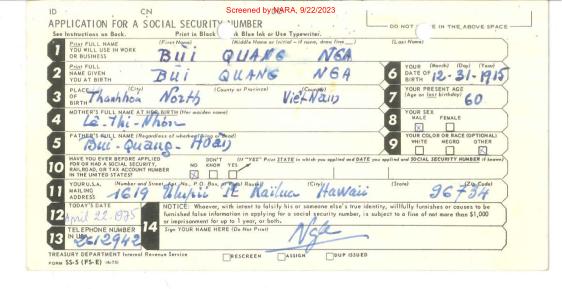 Screened by NARA, 9/22/2023
ID CN DO NOT IN THE ABOVE SPACE
APPLICATION FOR A SOCIAL SECURITY NUMBER
See Instructions on Back. Print in Black Blue Ink or Use Typewriter.
1 Print FULL NAME YOU WILL USE IN WORK OR BUSINESS (First Name) (Middle Name or Initial – if none, draw line) (Last Name)
BÙI QUANG NGA
2 Print FULL NAME GIVEN YOU AT BIRTH BÙI QUANG NGA
6 YOUR DATE OF BIRTH (Month) (Day) (Year) 12-31-1915
3 PLACE OF BIRTH (City) (County or Province) (Country) Thanhhóa North Việt-Nam
7 YOUR PRESENT AGE (Age on last birthday) 60
4 MOTHER'S FULL NAME AT HER BIRTH (Her maiden name) Lê-Thị-Nhơn
8 YOUR SEX MALE FEMALE
5 FATHER'S FULL NAME (Regardless of whether living or dead) Bùi-Quang-Hoàn
9 YOUR COLOR OR RACE (OPTIONAL) WHITE NEGRO OTHER
10 HAVE YOU EVER BEFORE APPLIED FOR OR HAD A SOCIAL SECURITY, RAILROAD, OR TAX ACCOUNT NUMBER IN THE UNITED STATES? NO DON'T KNOW YES (If "YES" Print STATE in which you applied and DATE you applied and SOCIAL SECURITY NUMBER if known)
11 YOUR U.S.A. MAILING ADDRESS (Number and Street, Apt. No., P.O. Box, or Rural Route) (City) (State) (Zip Code)
1619 Ulupii St Kailua Hawaii 96734
12 TODAY'S DATE April 22 1975
NOTICE: Whoever, with intent to falsify his or someone else's true identity, willfully furnishes or causes to be furnished false information in applying for a social security number, is subject to a fine of not more than $1,000 or imprisonment for up to 1 year, or both.
13 TELEPHONE NUMBER 2612942
14 Sign YOUR NAME HERE (Do Not Print) Nga
TREASURY DEPARTMENT Internal Revenue Service RESCREEN ASSIGN DUP ISSUED
FORM SS-5